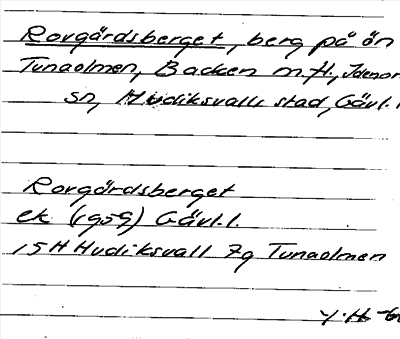 Rorgårdsberget, berg på ön
Tunaolmen, Backen m.fl., Idenor
sn, Hudiksvalls stad, Gävl.l
Rorgårdsberget
ek (1959) Gävl.l.
15H Hudiksvall 7g Tunaolmen